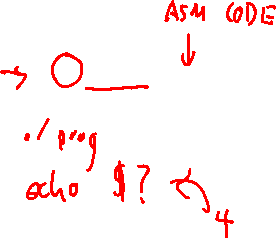 ASM CODE
./prog
echo $?
4